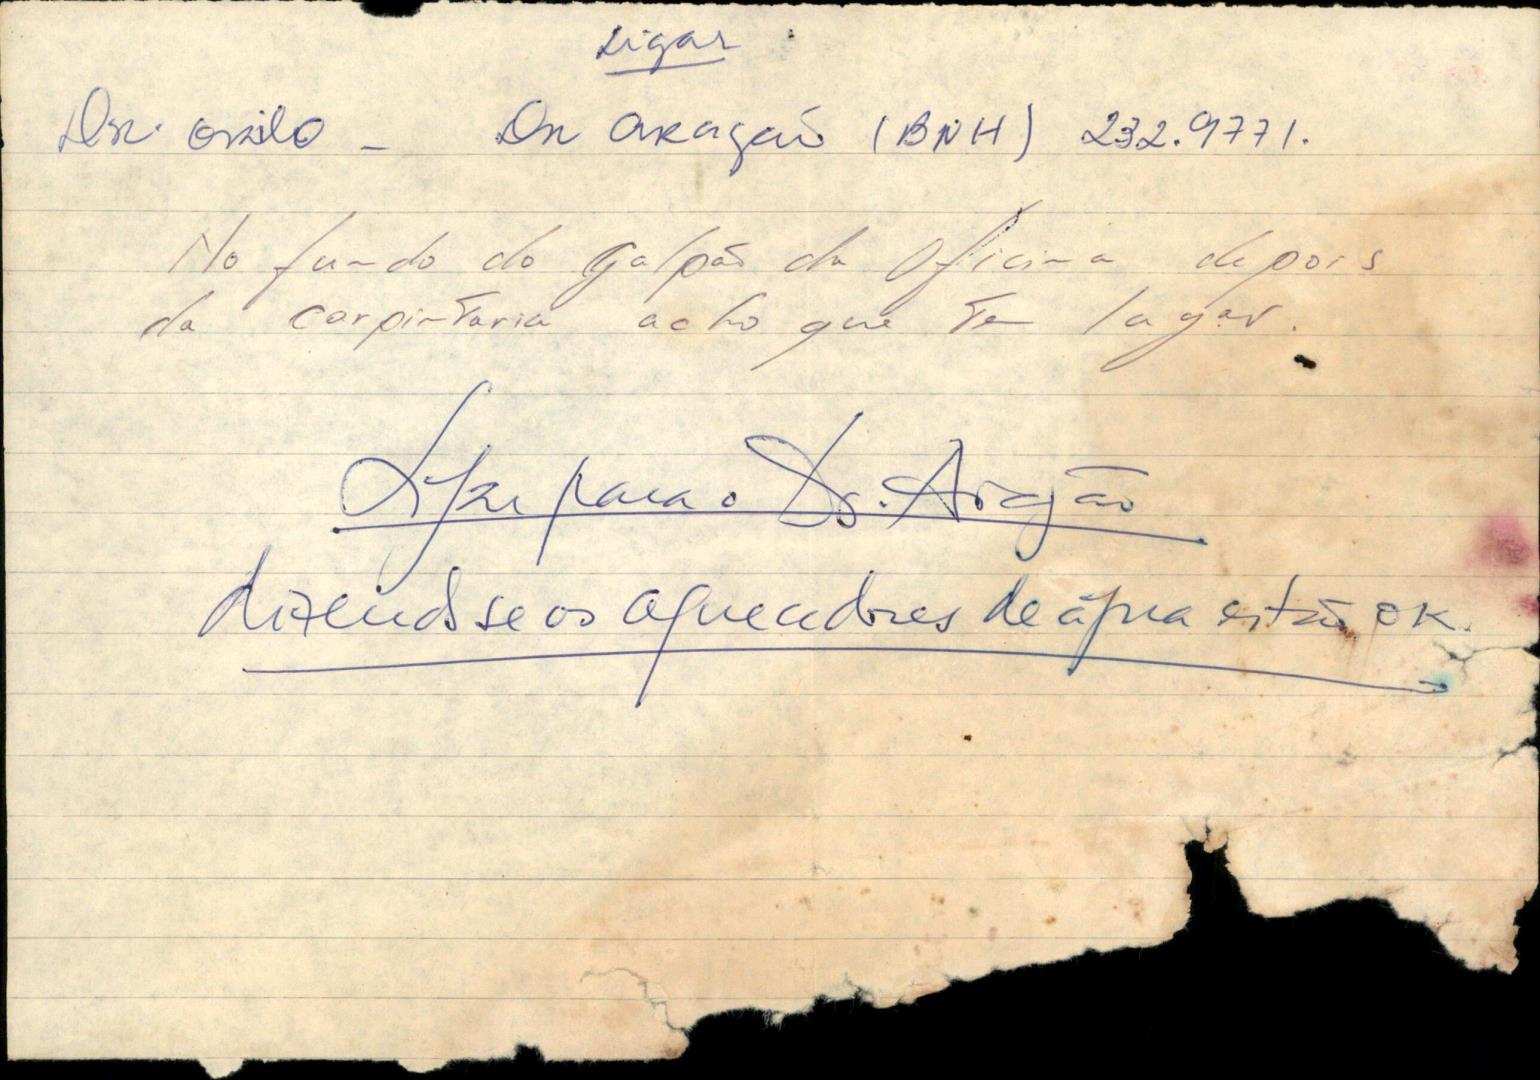 Ligar
Dr. Ovídio - Dr Aragão (BNH) 232.9771.
No fundo do galpão da oficina depois
da carpintaria acho que tem lugar.
Ligar para o Dr. Aragão
dizendo se os aquecedores de água estão OK.